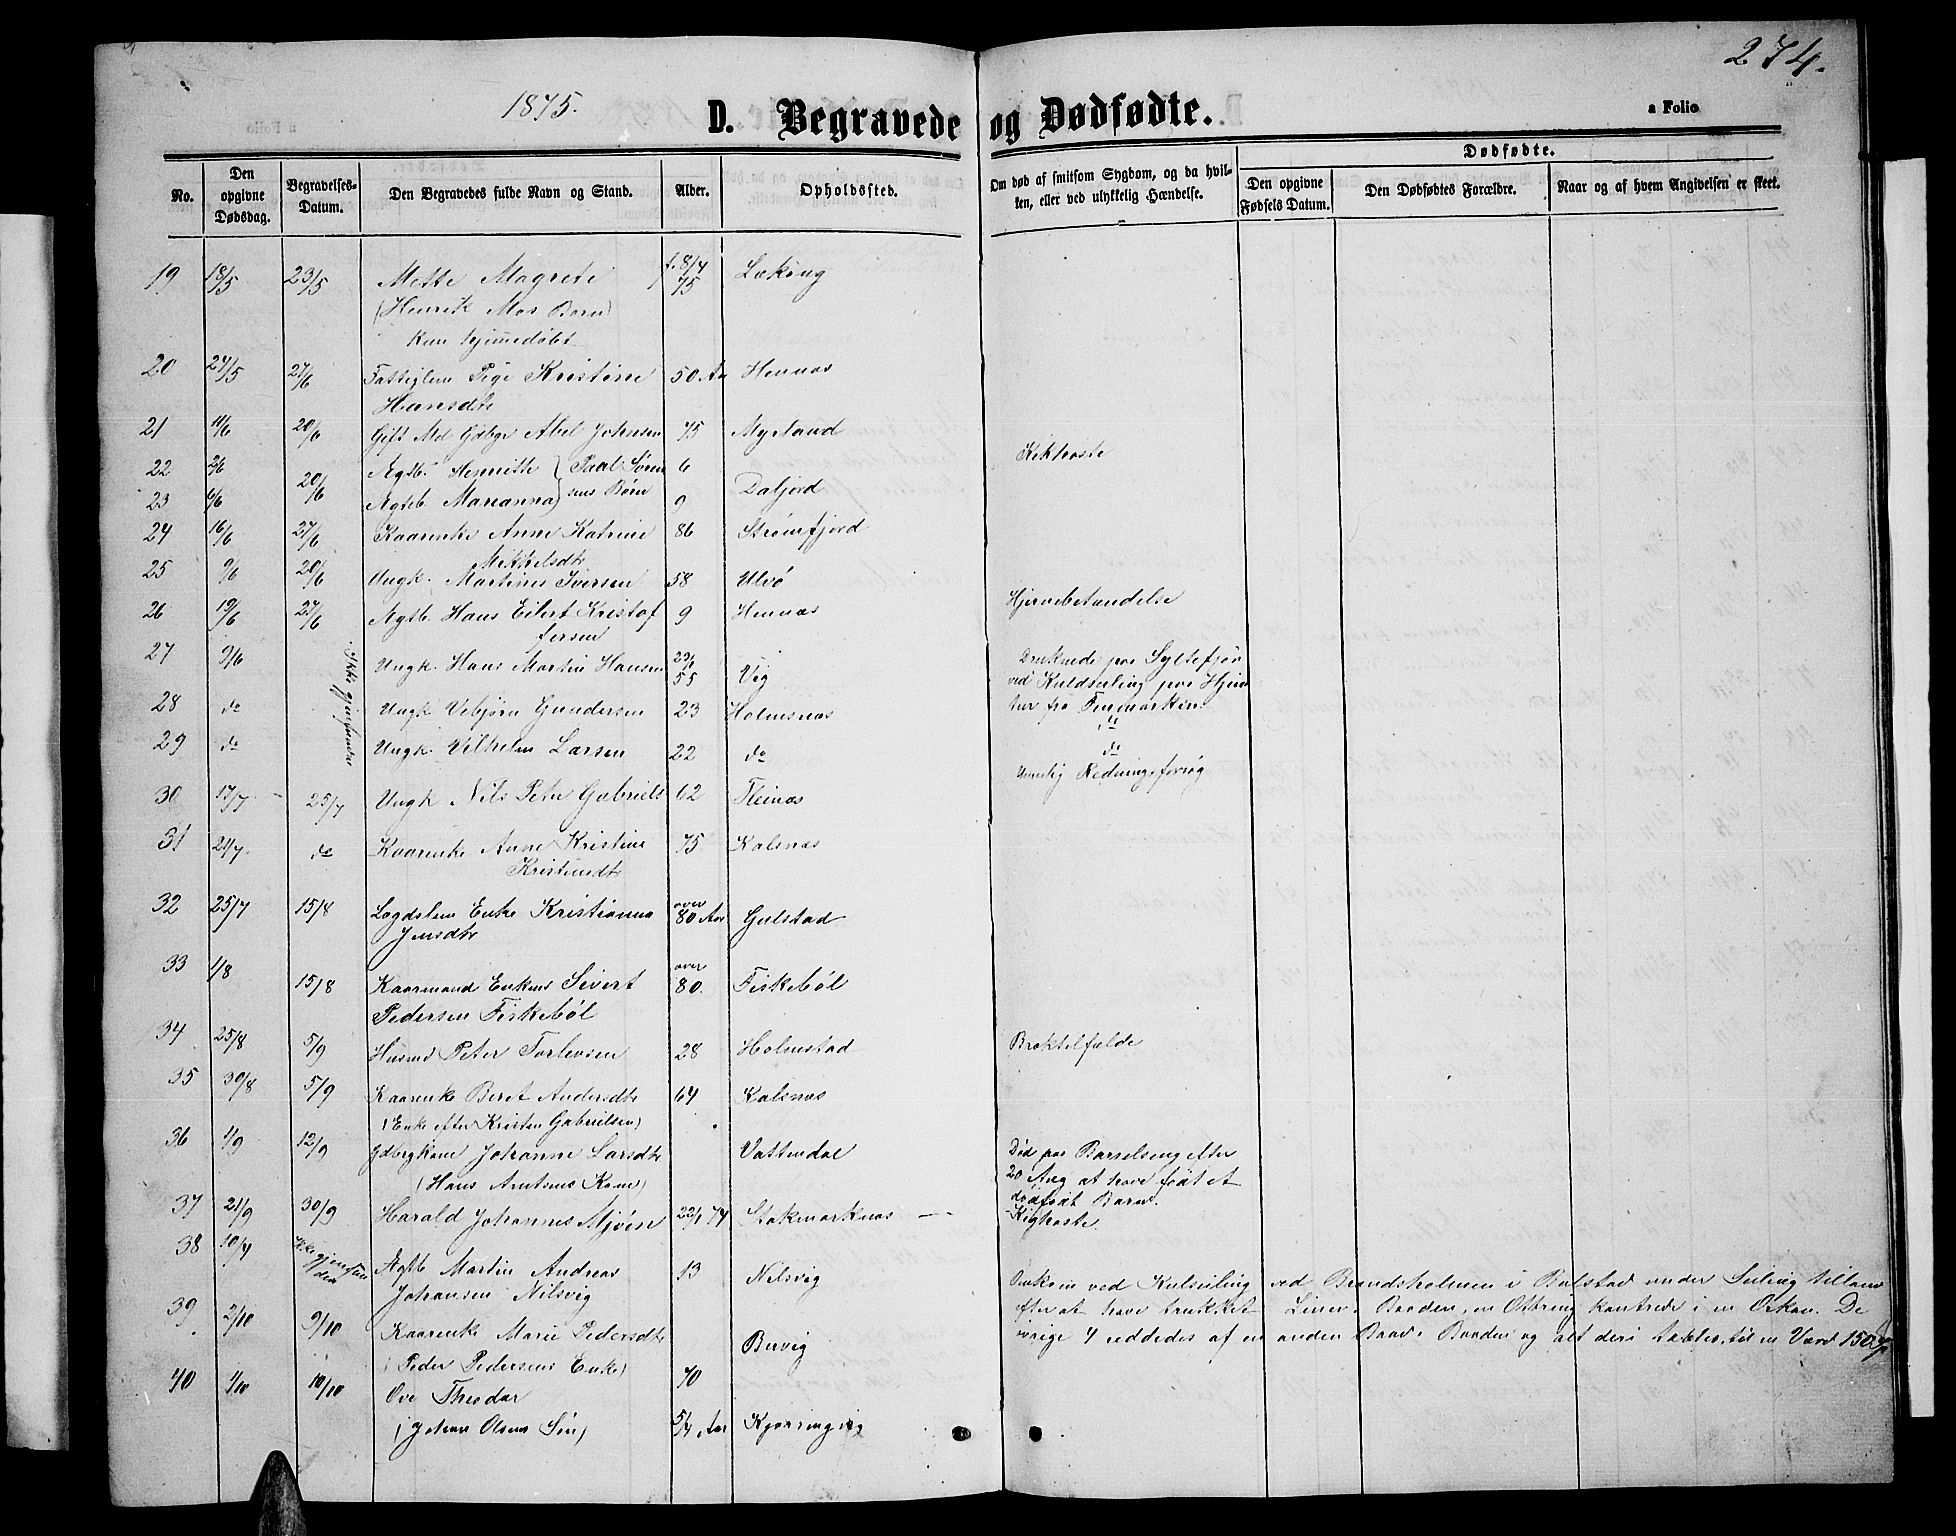 274.
1875.
D. Begravede og Dødfødte.
a Folio
No.
Den opgivne Dødsdag.
Begravelses-Datum.
Den Begravedes fulde Navn og Stand.
Alder.
Opholdssted.
Om død af smitsom Sygdom, og da hvilken, eller ved ulykkelig Hændelse.
Dødfødte.
Den opgivne Fødsels Datum.
Den Dødfødtes Forældre.
Naar og af hvem Angivelsen er skeet.
19 18/5 23/5 Mette Magrete f. 8/4 75
(Henrik Mos Barn)
kun hjemmedøbt
20 24/5 27/6 Fattiglem Pige Kristine 50 Aar Hennes
Hansdtr
21 11/6 20/6 Gift Md Gdbgr Abel Johnsen 75 Myrland
22 2/6 20/6 Ægtb. Henriette (Paal Søren 6 Kikhoste
23 6/6 Ægteb. Marianna) sens Børn 9 Daljord
24 16/6 27/6 Kaarenke Anne Katrine 86 Strømfjord
Mikkelsdtr
25 9/6 20/6 Ungk. Martinus Iversen 58 Ulvø
26 19/6 27/6 Ægtb. Hans Eilert Kristof 9 Hennes Hjernebetændelse
fersen
27 9/6 Ikke gjenfundne Ungk. Hans Martin Hansen 55 Vig Druknede paa Syltefjor
ved Kuldseiling paa Hjem
tur fra Finmarken
28 do Ungk Vebjørn Gundersen 23 Holmsnes do
29 do Ungk. Vilhelm Larsen 22 do do
Redningsforsøg
30 17/7 25/7 Ungk Nils Peter Gabriels 62 Fleines
31 21/7 do Kaarenke Anne Kristine 75 Kalsnes
32 25/7 15/8 Lægdslem Enke Kristianna over 80 Aar Gulstad
Jensdtr
33 1/8 15/8 Kaarmand Enkem Sivert over 80. Fiskebøl
Pedersen Fiskebøl
34 25/8 5/9 Husmd Peter Torlevsen 28 Holmstad Broktilfælde
35 30/8 5/9 Kaarenke Beret Andersdtr 64 Kalsnes
(Enke efter Kristen Gabrielsen)
36 1/9 12/9 Gdbrgkone Johanne Larsdtr Vattendal Død paa Barselseng efter
(Hans Arntsens Kone) 20 Aug at have født et
dødfødt Barn.
37 21/9 30/9 Harald Johannes Mjøen 22/1 74 Stokmarknes Kighoste
38 10/4 Ikke gjenfunden Ægtb Martin Andreas 13 Nilsvig Omkom ved Kulseiling ved Brandsholmen i Balstad under Seiling tilland
Johansen Nilsvig efter at have trukket Liner. Baaden, en Otring kantrede i en Orkan. De
39 2/10 9/10 Kaarenke Marie Pedersdtr Bervig øvrige 4 reddedes af en anden Baad. Baaden og alt deri tabtes, til en Værd 150
(Peder Pedersens Enke) 70
40 1/10 10/10 Ove Theodor
(Johan Olsens Søn) 5/4 Aar